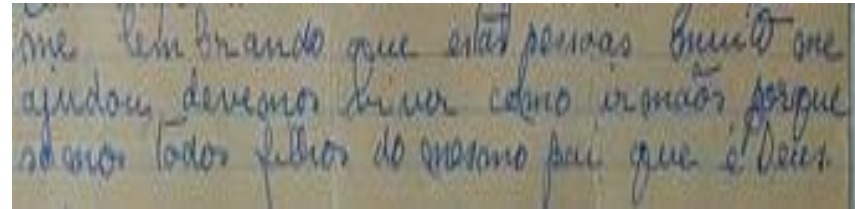 me lembrando que estas pessoas muito me
ajudou, devemos viver como irmãos porque
somos todos filhos do mesmo pai que é Deus.